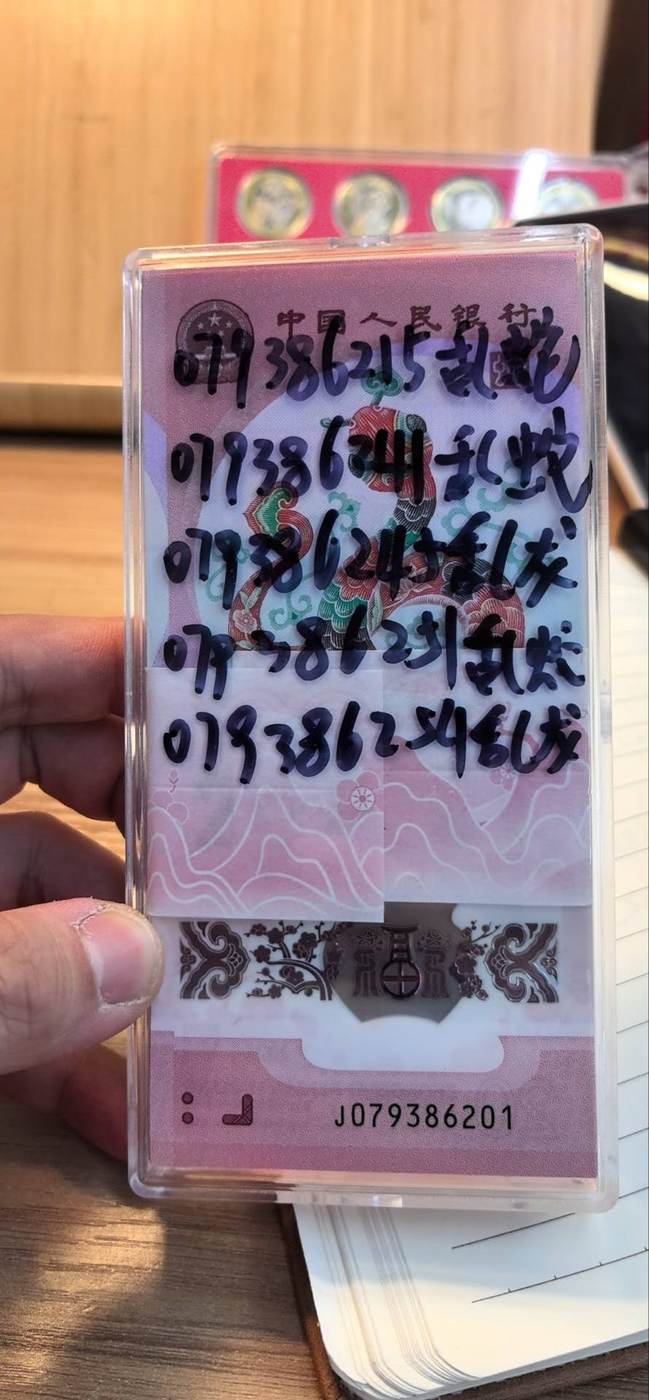 中国人民銀行
079386215乱蛇
079386241乱蛇
079386245乱龙
079386251乱蛇
079386254乱龙
J079386201